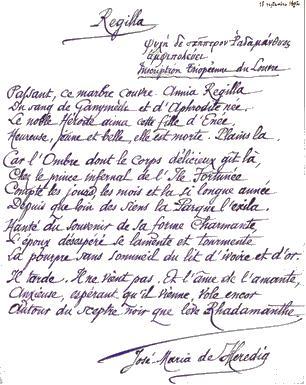 18 septembre 1892
Regilla
ψυχὴ δὲ σκῆπτρον Ῥαδαμάνθυος
ἀμφιπολεύει
Inscription Triopéenne du Louvre
Passant, ce marbre couvre Annia Regilla
Du sang de Ganymède et d'Aphrodite née.
Le noble Hérode aima cette fille d'Enée.
Heureuse, jeune et belle, elle est morte. Plains la.
Car l'Ombre dont le corps délicieux gît là,
Chez le prince infernal de l'Île Fortunée
Compte les jours, les mois et la si longue année
Depuis que loin des siens la Parque l'exila.
Hanté du souvenir de sa forme charmante,
L'époux désespéré se lamente et tourmente
La pourpre sans sommeil du lit d'ivoire et d'or.
Il tarde. Il ne vient pas. Et l'âme de l'amante,
Anxieuse, espérant qu'il vienne, vole encor
Autour du sceptre noir que lève Rhadamanthe.
José-Maria de Heredia